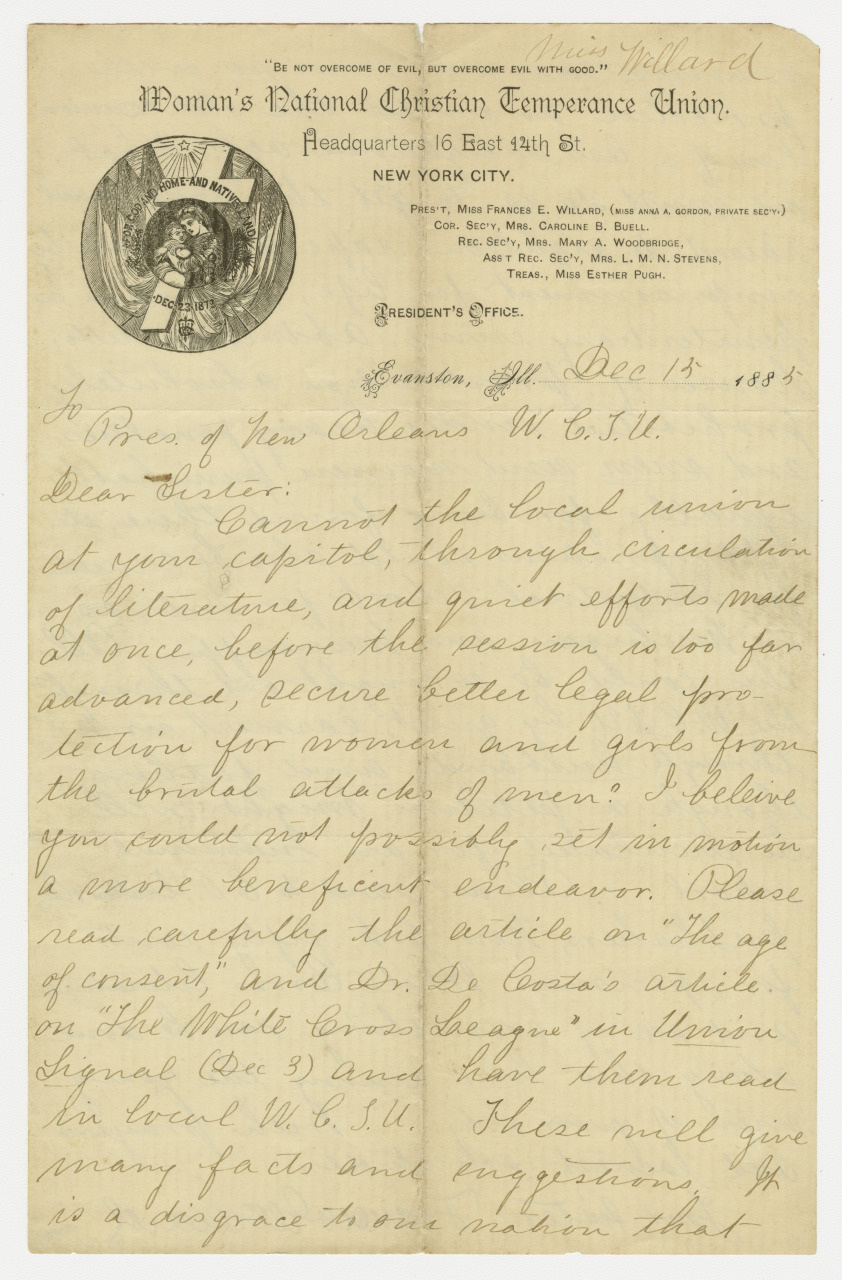 Miss Willard
"Be not overcome of evil, but overcome evil with good."
Woman's National Christian Temperance Union.
Headquarters 16 East 14th St.
NEW YORK CITY.
FOR GOD AND HOME AND NATIVE LAND
DEC. 23 1873
Pres't, Miss Frances E. Willard, (Miss Anna A. Gordon, Private Sec'y.)
Cor. Sec'y, Mrs. Caroline B. Buell.
Rec. Sec'y, Mrs. Mary A. Woodbridge,
Ass t Rec. Sec'y, Mrs. L. M. N. Stevens,
Treas., Miss Esther Pugh.
President's Office.
Evanston, Ill. Dec 15 1885
To
Pres. of New Orleans W. C. T. U.
Dear Sister:
Cannot the local union
at your capitol, through circulation
of literature, and quiet efforts made
at once, before the session is too far
advanced, secure better legal pro-
tection for women and girls from
the brutal attacks of men? I beleive
you could not possibly set in motion
a more beneficent endeavor. Please
read carefully the article on "The age
of consent," and Dr. De Costa's article.
on "The White Cross League" in Union
Signal (Dec 3) and have them read
in local W. C. T. U. These will give
many facts and suggestions. It
is a disgrace to our nation that